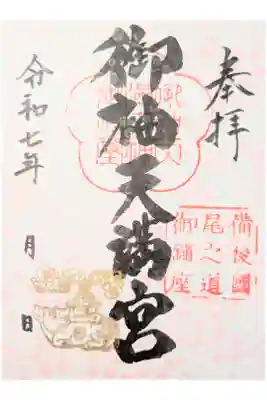 奉拝
備後國
尾之道
御鎮座
御袖天満宮
令和七年
月
日